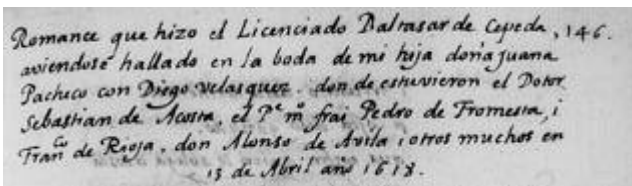 Romance que hizo el Licenciado Baltasar de Cepeda, 146.
aviendose hallado en la boda de mi hija doña Juana
Pacheco con Diego Velasquez. donde estuvieron el Dotor
Sebastian de Acosta, el Pe mo frai Pedro de Fromesta, i
Franco de Rioja, don Alonso de Avila i otros muchos en
13 de Abril año 1618.